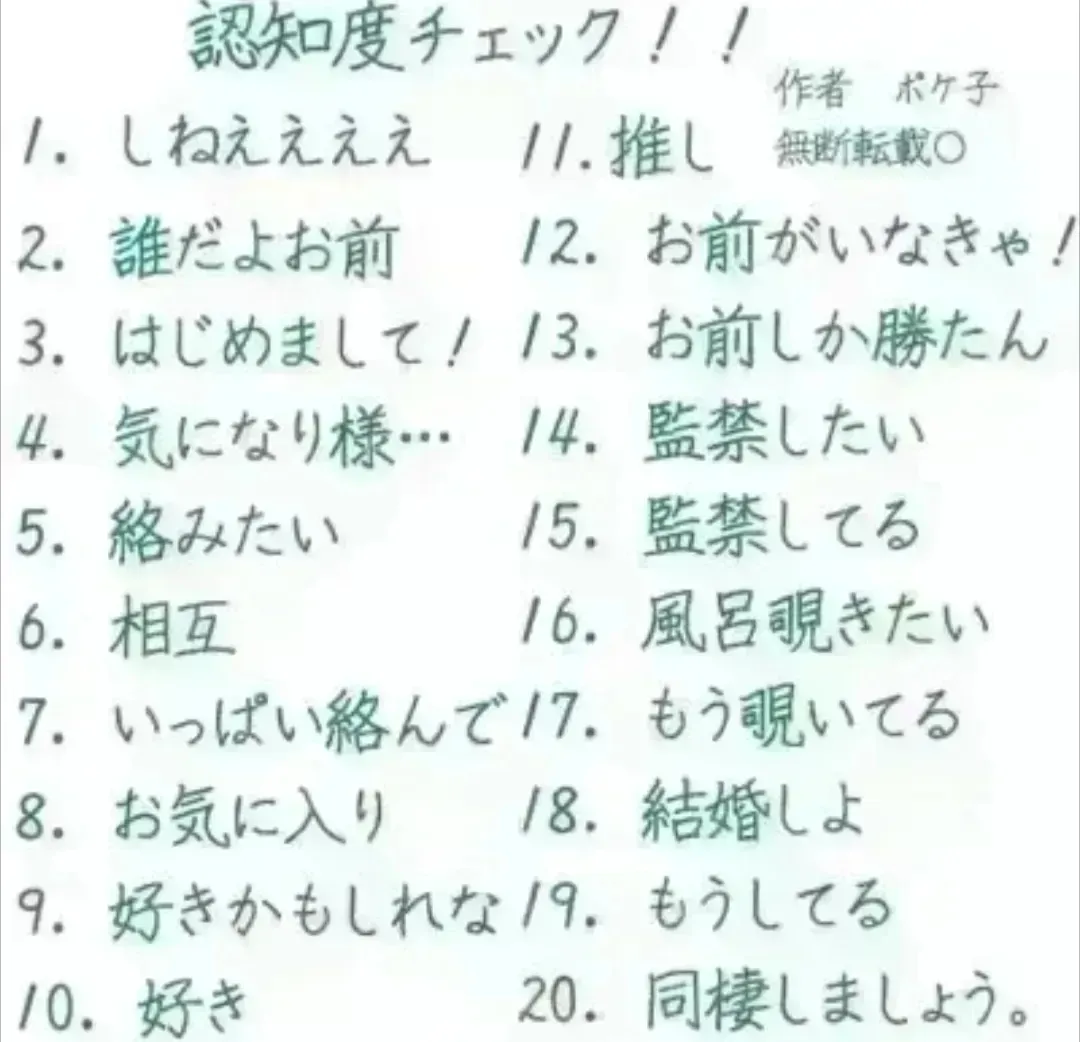 認知度チェック！！
作者 ポケ子
無断転載○
1. しねええええ
2. 誰だよお前
3. はじめまして！
4. 気になり様…
5. 絡みたい
6. 相互
7. いっぱい絡んで
8. お気に入り
9. 好きかもしれな
10. 好き
11. 推し
12. お前がいなきゃ！
13. お前しか勝たん
14. 監禁したい
15. 監禁してる
16. 風呂覗きたい
17. もう覗いてる
18. 結婚しよ
19. もうしてる
20. 同棲しましょう。